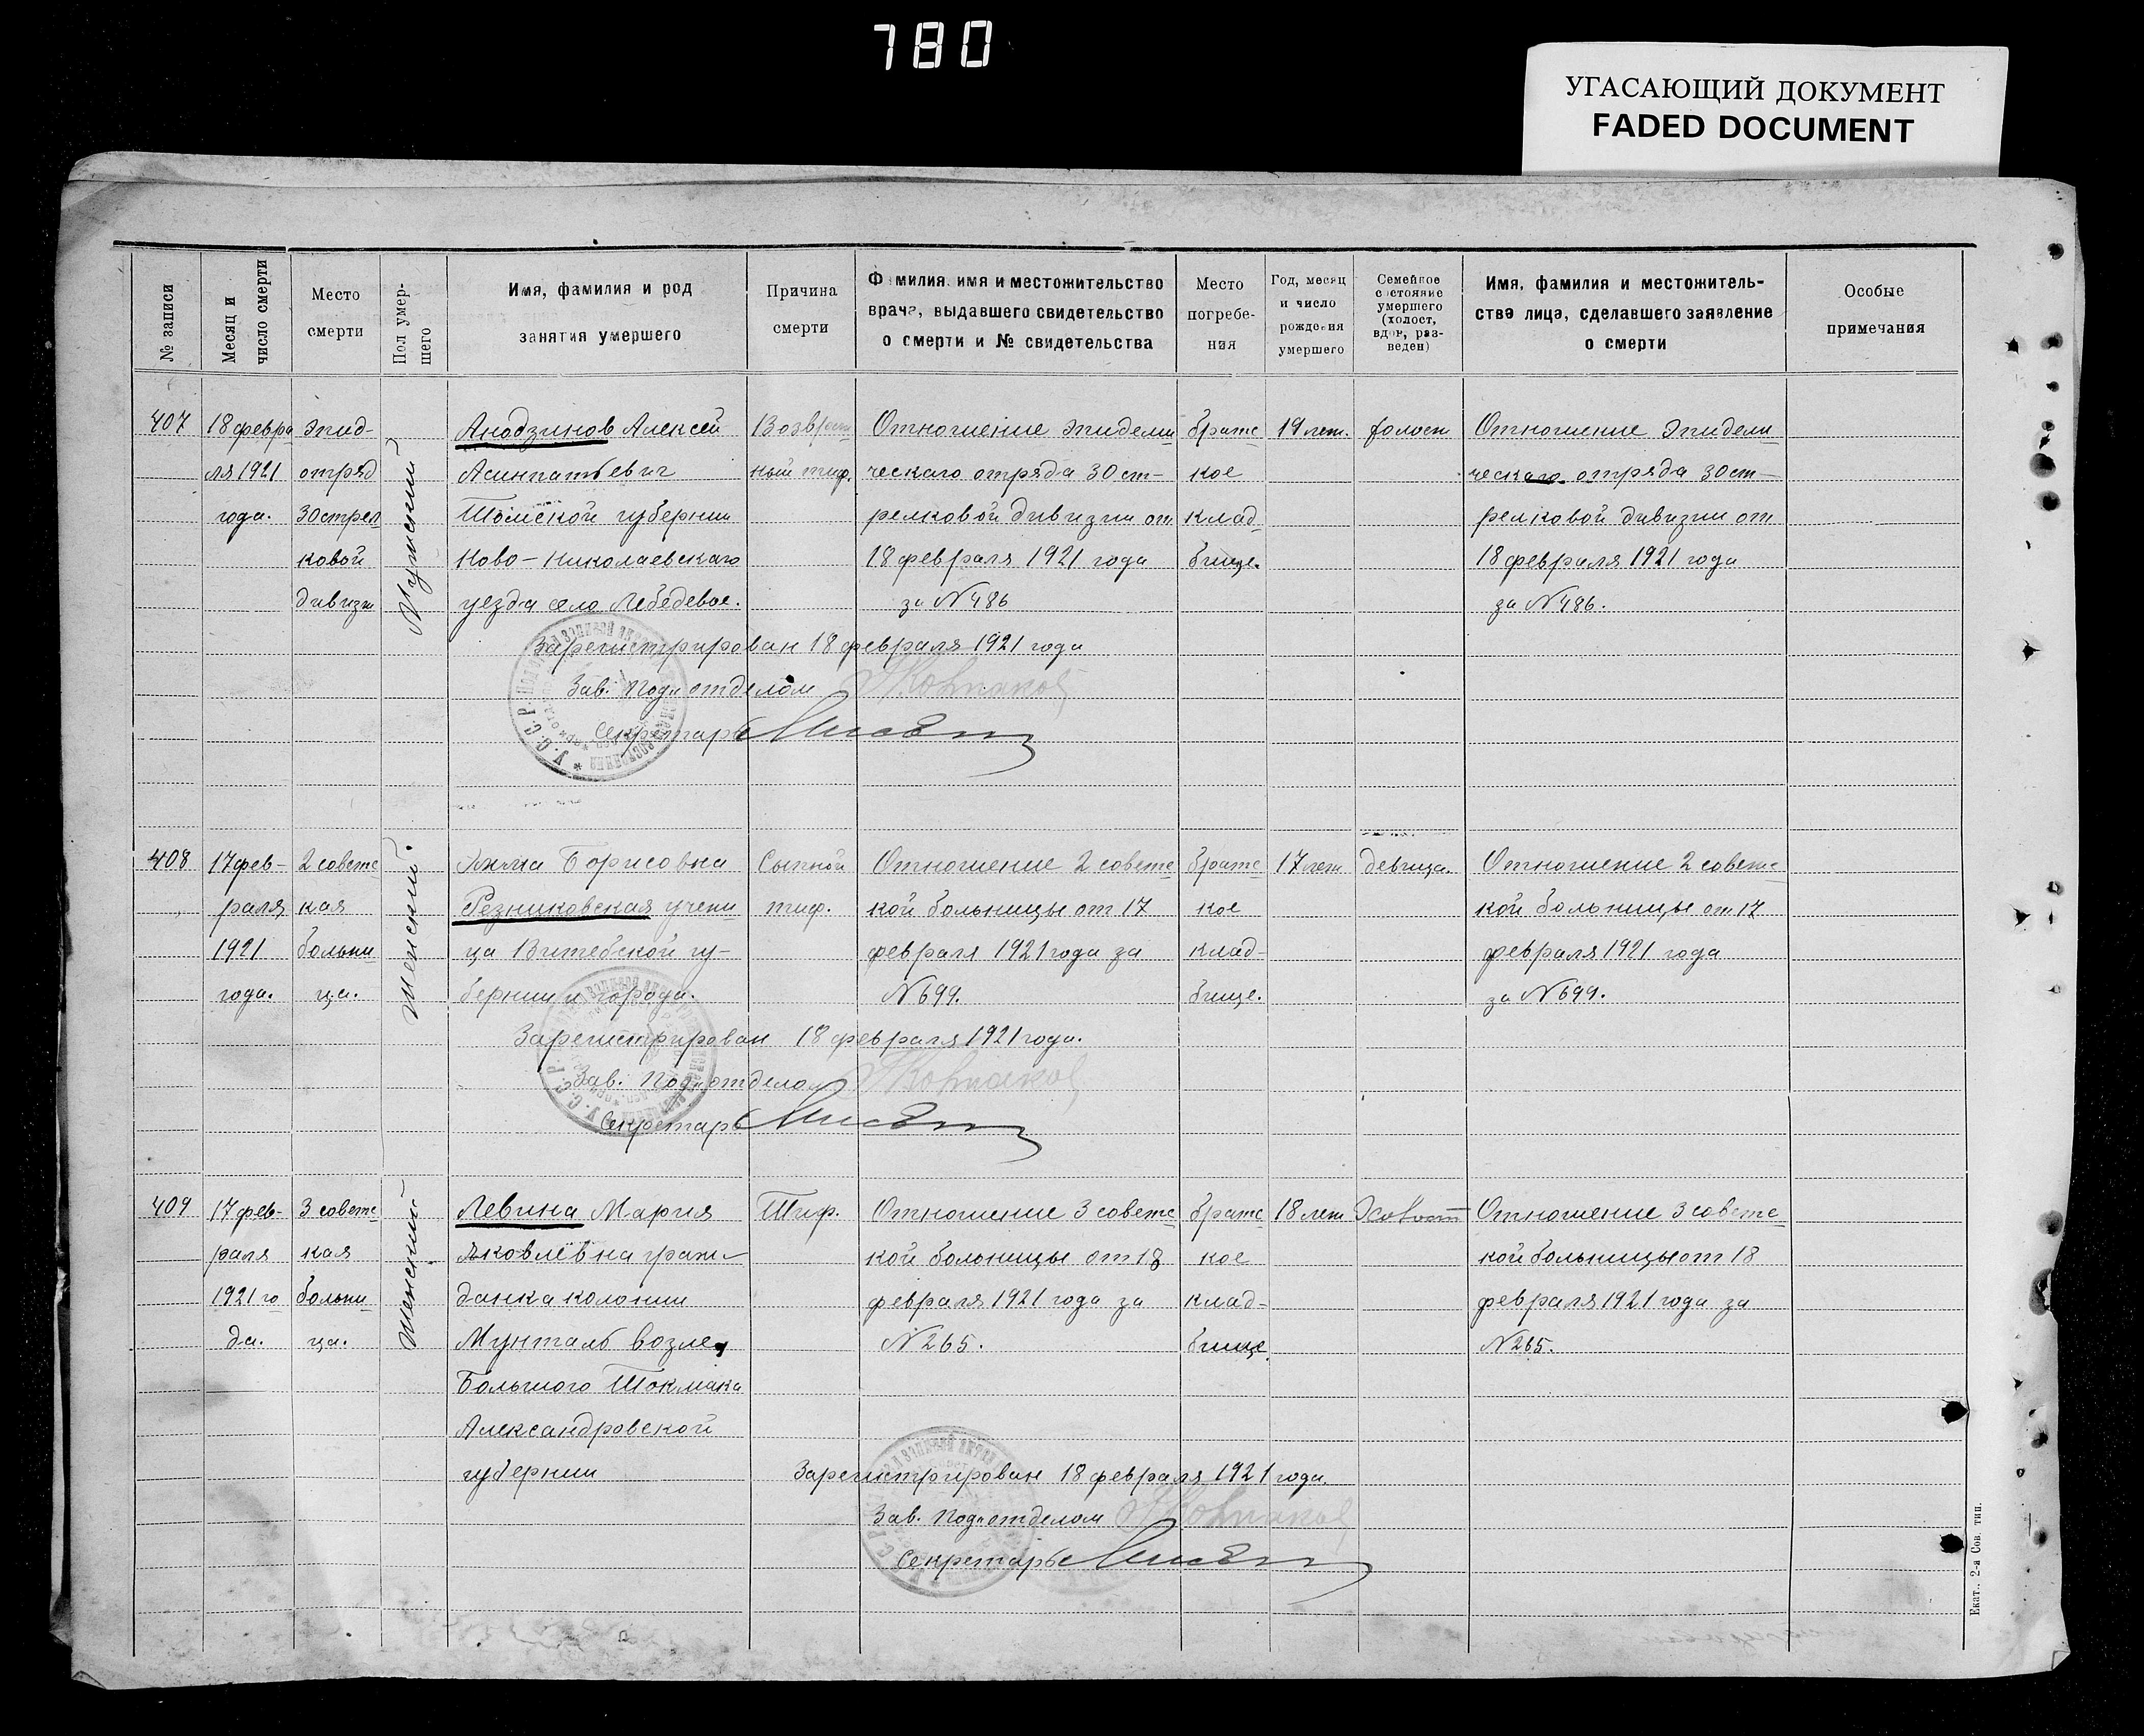 780
УГАСАЮЩИЙ ДОКУМЕНТ
FADED DOCUMENT
№ записи
Месяц и
число смерти
Место
смерти
Пол умер-
шего
Имя, фамилия и род
занятия умершего
Причина
смерти
Фамилия, имя и местожительство
врача, выдавшего свидетельство
о смерти и № свидетельства
Место
погребе-
ния
Год, месяц
и число
рождения
умершего
Семейное
состояние
умершего
(холост,
вдов, раз-
веден)
Имя, фамилия и местожитель-
ства лица, сделавшего заявление
о смерти
Особые
примечания
407
18 февра
ля 1921
года.
эпид-
отряд
30 стрел
ковой
дивизи
Мужской
Анодзинов Алексей
Асинпатьевич
Томской губернии
Ново-Николаевскаго
уезда село Лебедевое.
Возврат
ный тиф.
Отношение эпидеми
ческаго отряда 30 ст-
релковой дивизии от
18 февраля 1921 года
за № 486
братс
кое
клад
бище.
19 лет.
холост
Отношение эпидеми
ческаго отряда 30 ст-
релковой дивизии от
18 февраля 1921 года
за № 486.
Зарегистрирован 18 февраля 1921 года
Зав. Подотделом
Секретарь
408
17 фев-
раля
1921
года.
2 советс
кая
больни
ца.
Женский.
Борисовна
Резниковская учени
ца Витебской гу-
бернии и города.
Сыпной
тиф.
Отношение 2 советс
кой больницы от 17
февраля 1921 года за
№ 699.
братс
кое
клад-
бище.
17 лет
девица.
Отношение 2 советс
кой больницы от 17
февраля 1921 года
за № 699.
Зарегистрирован 18 февраля 1921 года.
Зав. Подотделом
Секретарь
409
17 фев-
раля
1921 го
да.
3 советс
кая
больни
ца.
Женский
Левина Мария
Яковлевна граж-
данка колонии
Мунталь возле
Большого Токмака
Александровской
губернии
Тиф.
Отношение 3 советс
кой больницы от 18
февраля 1921 года за
№ 265.
братс
кое
клад-
бище.
18 лет
Отношение 3 советс
кой больницы от 18
февраля 1921 года за
№ 265.
Зарегистрирован 18 февраля 1921 года.
Зав. Подотделом
Секретарь
Екат., 2-я Сов. тип.